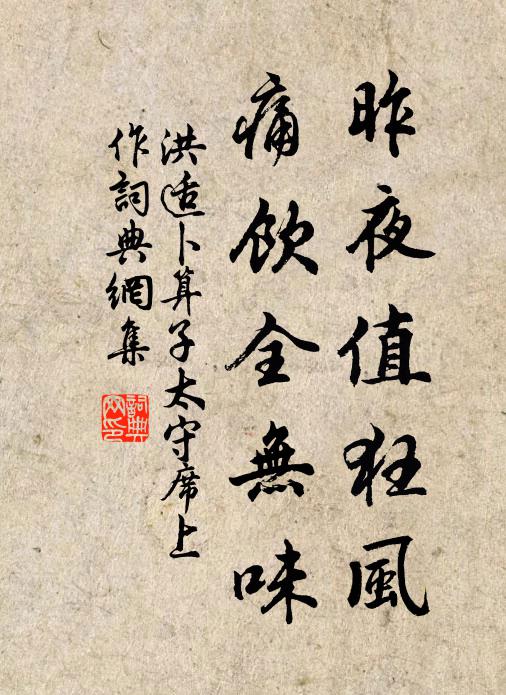 昨夜值狂風
痛飲全無味
洪适卜算子太守席上
作詞典網集
詞典網印